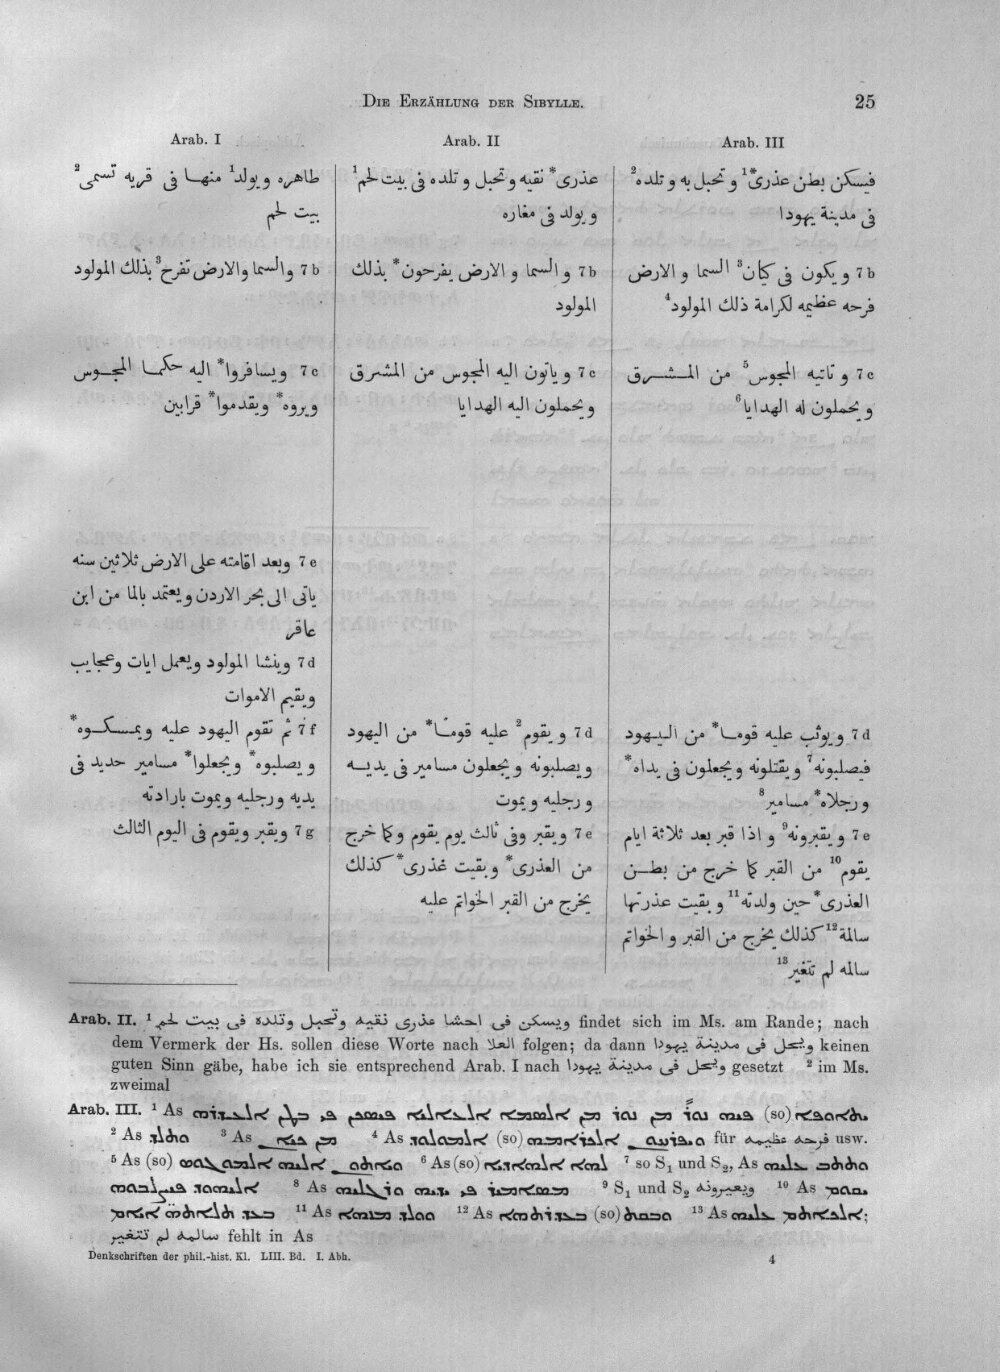 Die Erzählung der Sibylle.
25
Arab. I
طاهره ويولد¹ منها فى قريه تسمى²
بيت لحم
7b والسما والارض تفرح³ بذلك المولود
7c ويسافروا* اليه حكما المجوس
ويروه* ويقدموا* قرابين
7e وبعد اقامته على الارض ثلاثين سنه
ياتى الى بحر الاردن ويعتمد بالما من ابن
عاقر
7d وينشا المولود ويعمل ايات وعجايب
ويقيم الاموات
7f ثم تقوم اليهود عليه ويمسكوه*
ويصلبوه* ويجعلوا* مسامير حديد فى
يديه ورجليه ويموت بارادته
7g ويقبر ويقوم فى اليوم الثالث
Arab. II
عذرى* نقيه وتحبل وتلده فى بيت لحم¹
ويولد فى مغاره
7b والسما والارض يفرحون* بذلك
المولود
7c وياتون اليه المجوس من المشرق
ويحملون اليه الهدايا
7d ويقوم² عليه قومًا* من اليهود
ويصلبونه ويجعلون مسامير فى يديه
ورجليه ويموت
7e ويقبر وفى ثالث يوم يقوم وكما خرج
من العذرى* وبقيت عذرى* كذلك
يخرج من القبر الخواتم عليه
Arab. III
فيسكن بطن عذرى*¹ وتحبل به وتلده²
فى مدينة يهودا
7b ويكون فى كيان³ السما والارض
فرحه عظيمه لكرامة ذلك المولود⁴
7c وتاتيه المجوس⁵ من المشرق
ويحملون له الهدايا⁶
7d ويوثب عليه قوما* من اليهود
فيصلبونه⁷ ويقتلونه ويجعلون فى يداه*
ورجلاه* مسامير⁸
7e ويقبرونه⁹ واذا قبر بعد ثلاثة ايام
يقوم¹⁰ من القبر كما خرج من بطن
العذرى* حين ولدته¹¹ وبقيت عذرتها
سالمة¹² كذلك يخرج من القبر والخواتم
سالمه لم تتغير¹³
Arab. II. ¹ ويسكن فى احشا عذرى نقيه وتحبل وتلده فى بيت لحم findet sich im Ms. am Rande; nach
dem Vermerk der Hs. sollen diese Worte nach العلا folgen; da dann ويحل فى مدينة يهودا keinen
guten Sinn gäbe, habe ich sie entsprechend Arab. I nach ويحل فى مدينة يهودا gesetzt ² im Ms.
zweimal
Arab. III. ¹ As (so)
² As ³ As ⁴ As (so) für فرحه عظيمه usw.
⁵ As (so) ⁶ As (so) ⁷ so S₁ und S₂, As
⁸ As ⁹ S₁ und S₂ ويعبرونه ¹⁰ As
¹¹ As ¹² As (so) ¹³ As ;
سالمه لم تتغير fehlt in As
Denkschriften der phil.-hist. Kl. LIII. Bd. I. Abh.
4